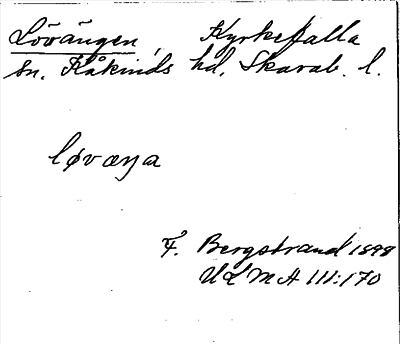 Lövängen, Kyrkefalla
sn. Kåkinds hd, Skarab. l.
løvæŋa
F. Bergstrand 1898
ULMA 111:170